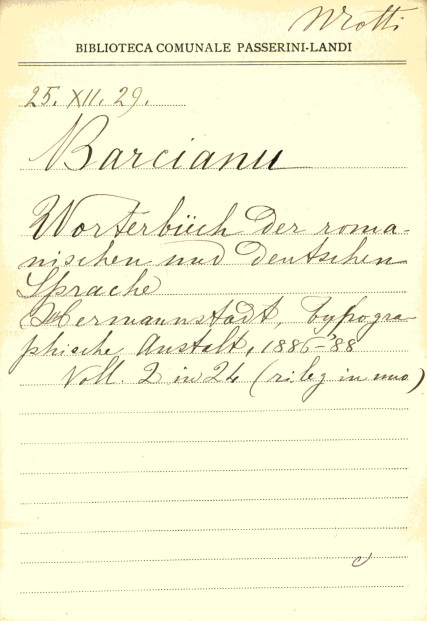 Wrotti
BIBLIOTECA COMUNALE PASSERINI-LANDI
25. XII. 29.
Barcianu
Worterbüch der roma-
nischen und deutschen
Sprache
Hermannstadt, typogra-
phische Anstalt, 1886-'88
Voll. 2 in 24 (rileg in uno)